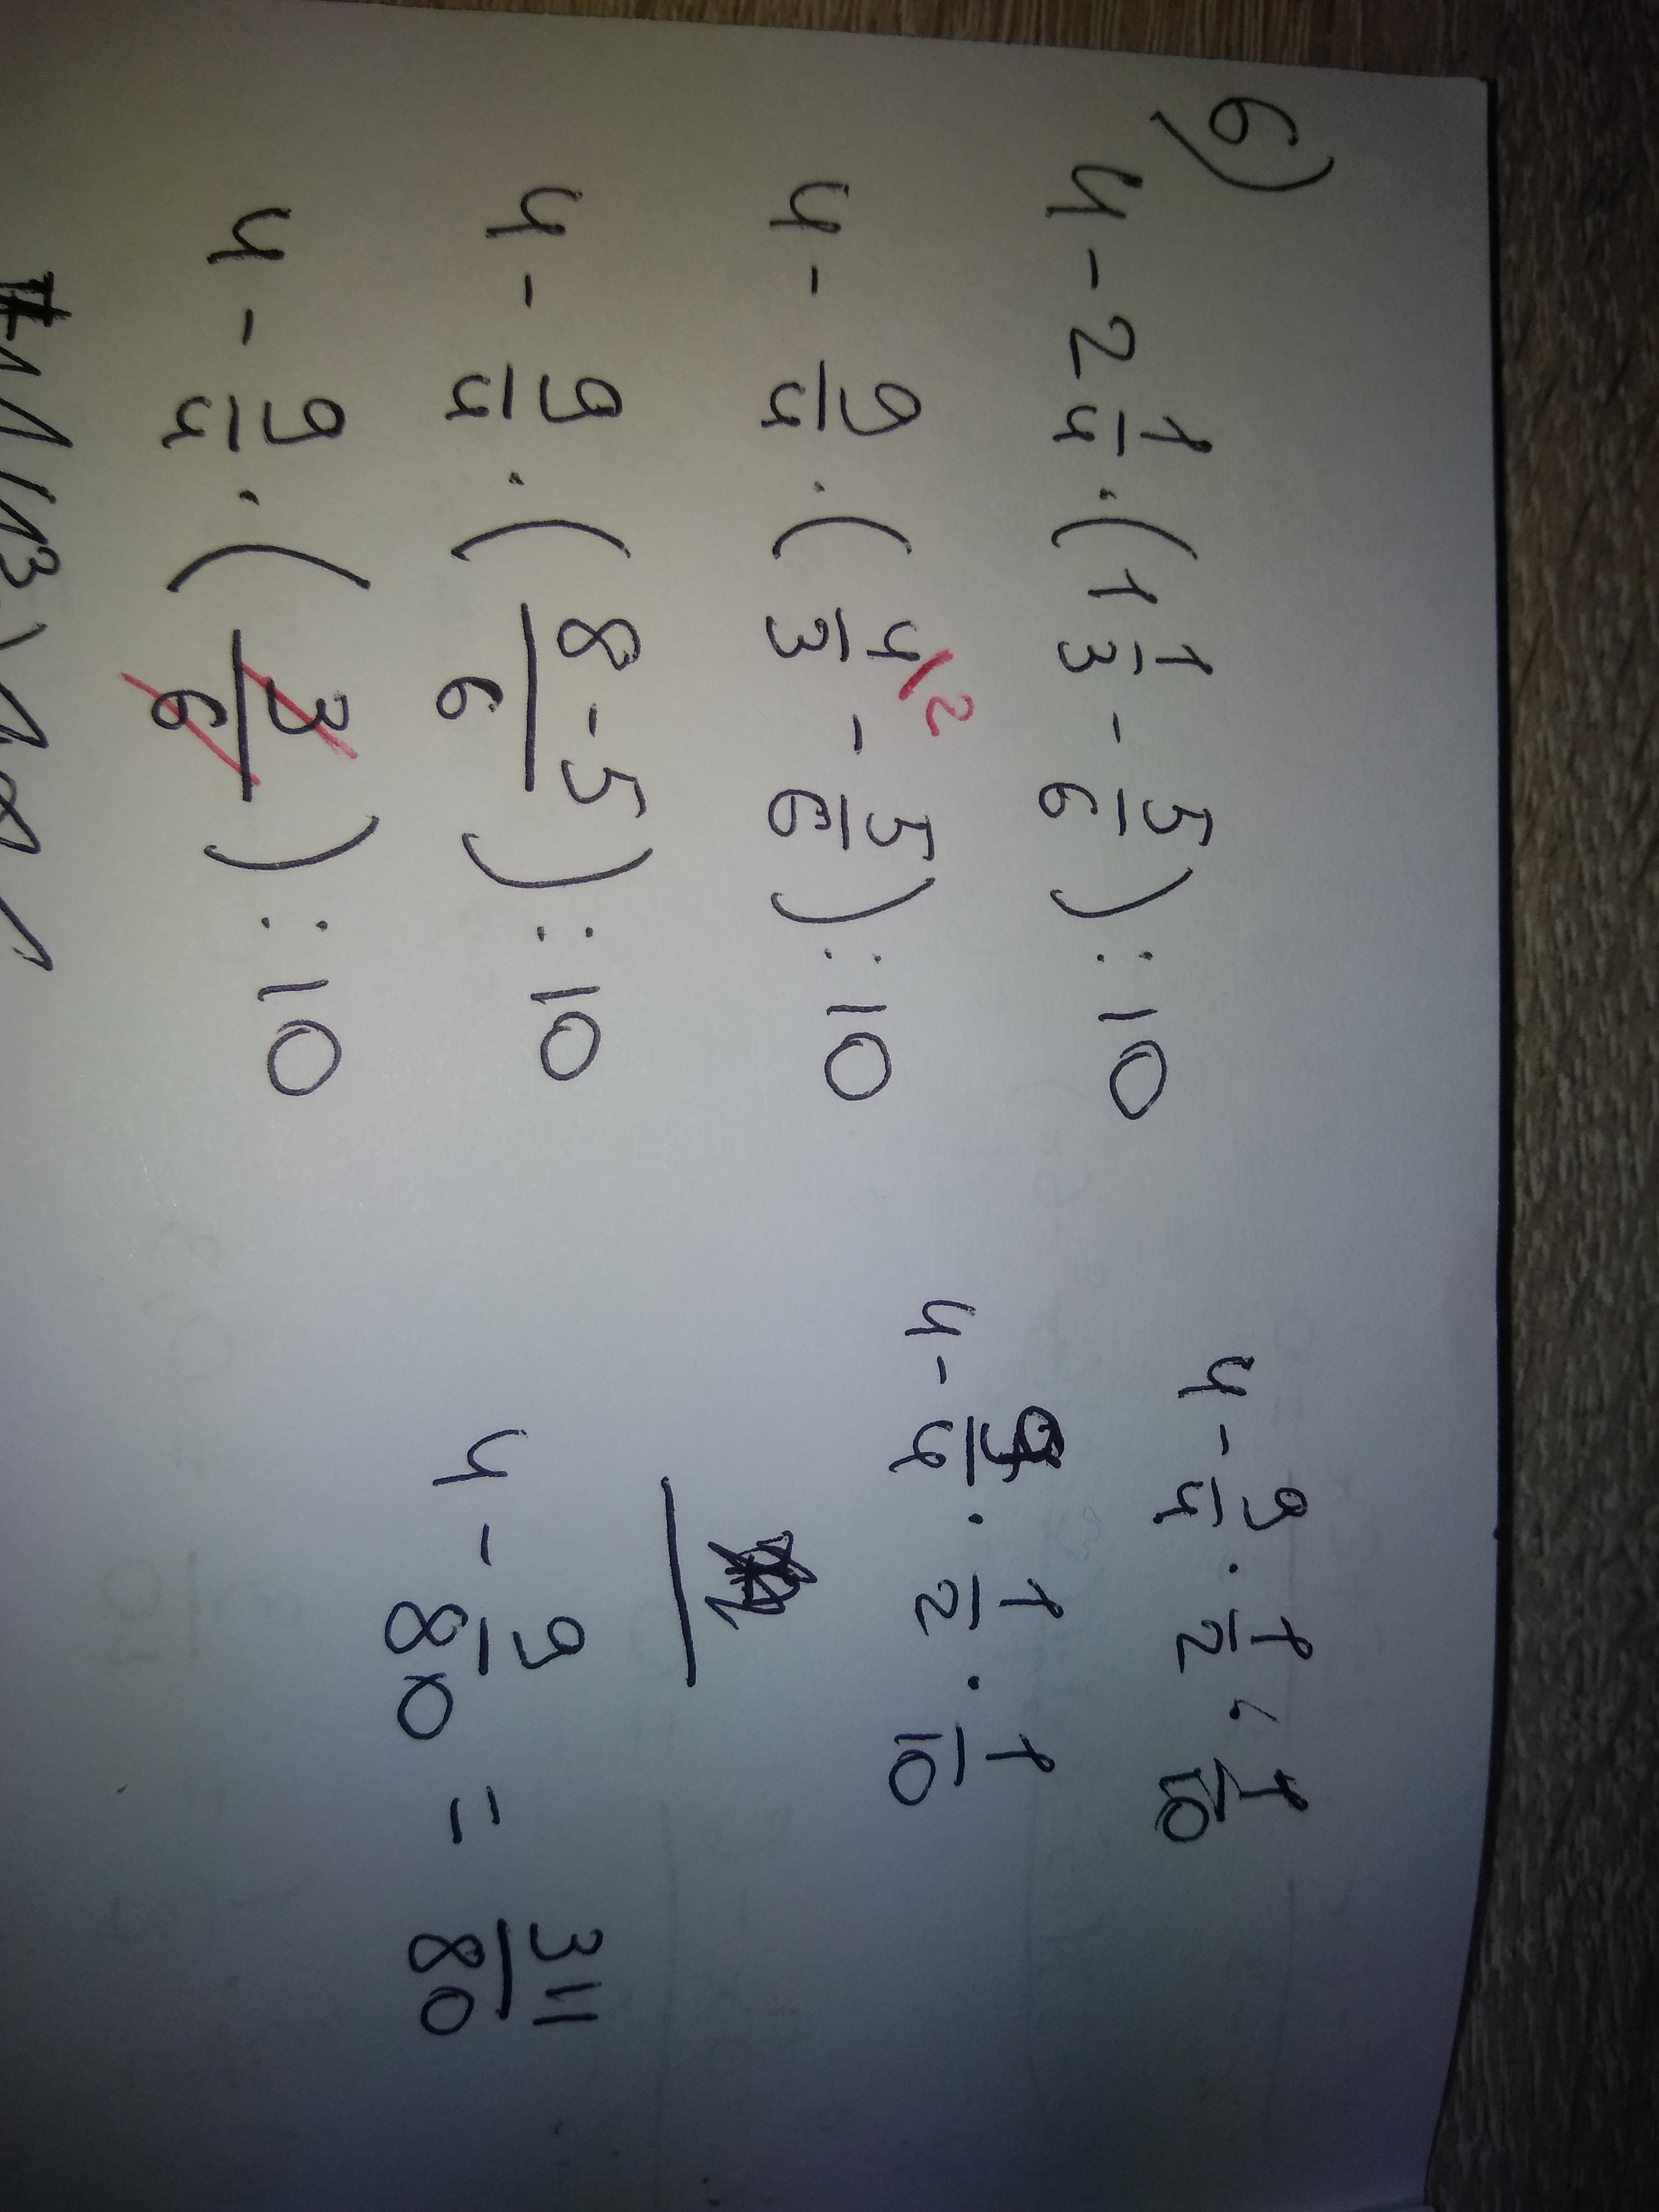 6)
4 - 2 1/4 · (1 1/3 - 5/6) : 10
4 - 9/4 · (4/3 \2 - 5/6) : 10
4 - 9/4 · (8 - 5/6) : 10
4 - 9/4 · (3/6) : 10
4 - 9/4 · 1/2 · 1/10
4 - 9/4 · 1/2 · 1/10
4 - 9/80 = 311/80